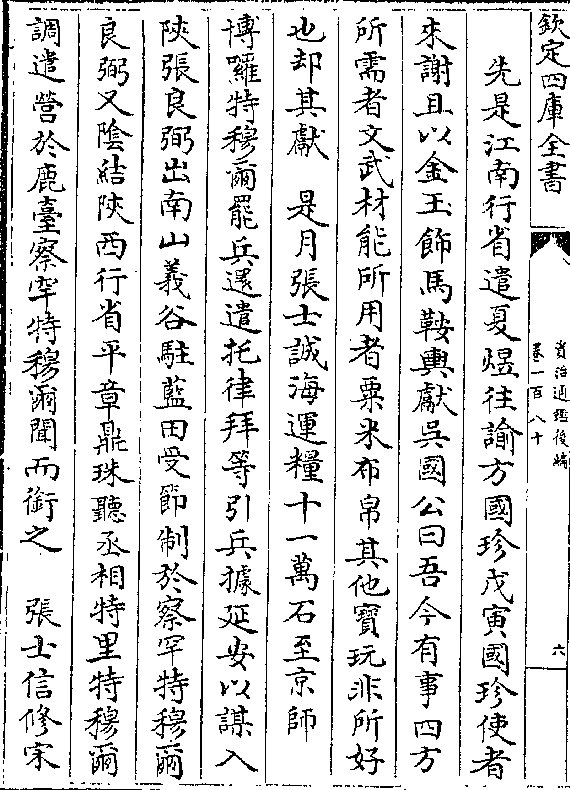 欽定四庫全書
資治通鑑後編
卷一百八十
六
先是江南行省遣夏煜往諭方國珍戊寅國珍使者
來謝且以金玉飾馬鞍輿獻吳國公曰吾今有事四方
所需者文武材能所用者粟米布帛其他寶玩非所好
也却其獻　是月張士誠海運糧十一萬石至京師
博囉特穆爾罷兵還遣托律拜等引兵據延安以謀入
陜張良弼出南山義谷駐藍田受節制於察罕特穆爾
良弼又陰結陜西行省平章鼎珠聽丞相特里特穆爾
調遣營於鹿臺察罕特穆爾聞而銜之　張士信修宋